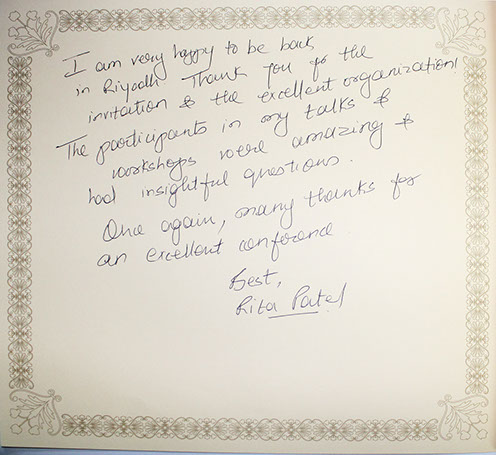 I am very happy to be back
in Riyadh Thank you for the
invitation & the excellent organization!
The participants in my talks &
workshops were amazing &
had insightful questions.
Once again, many thanks for
an excellent conference.
Best,
Rita Patel